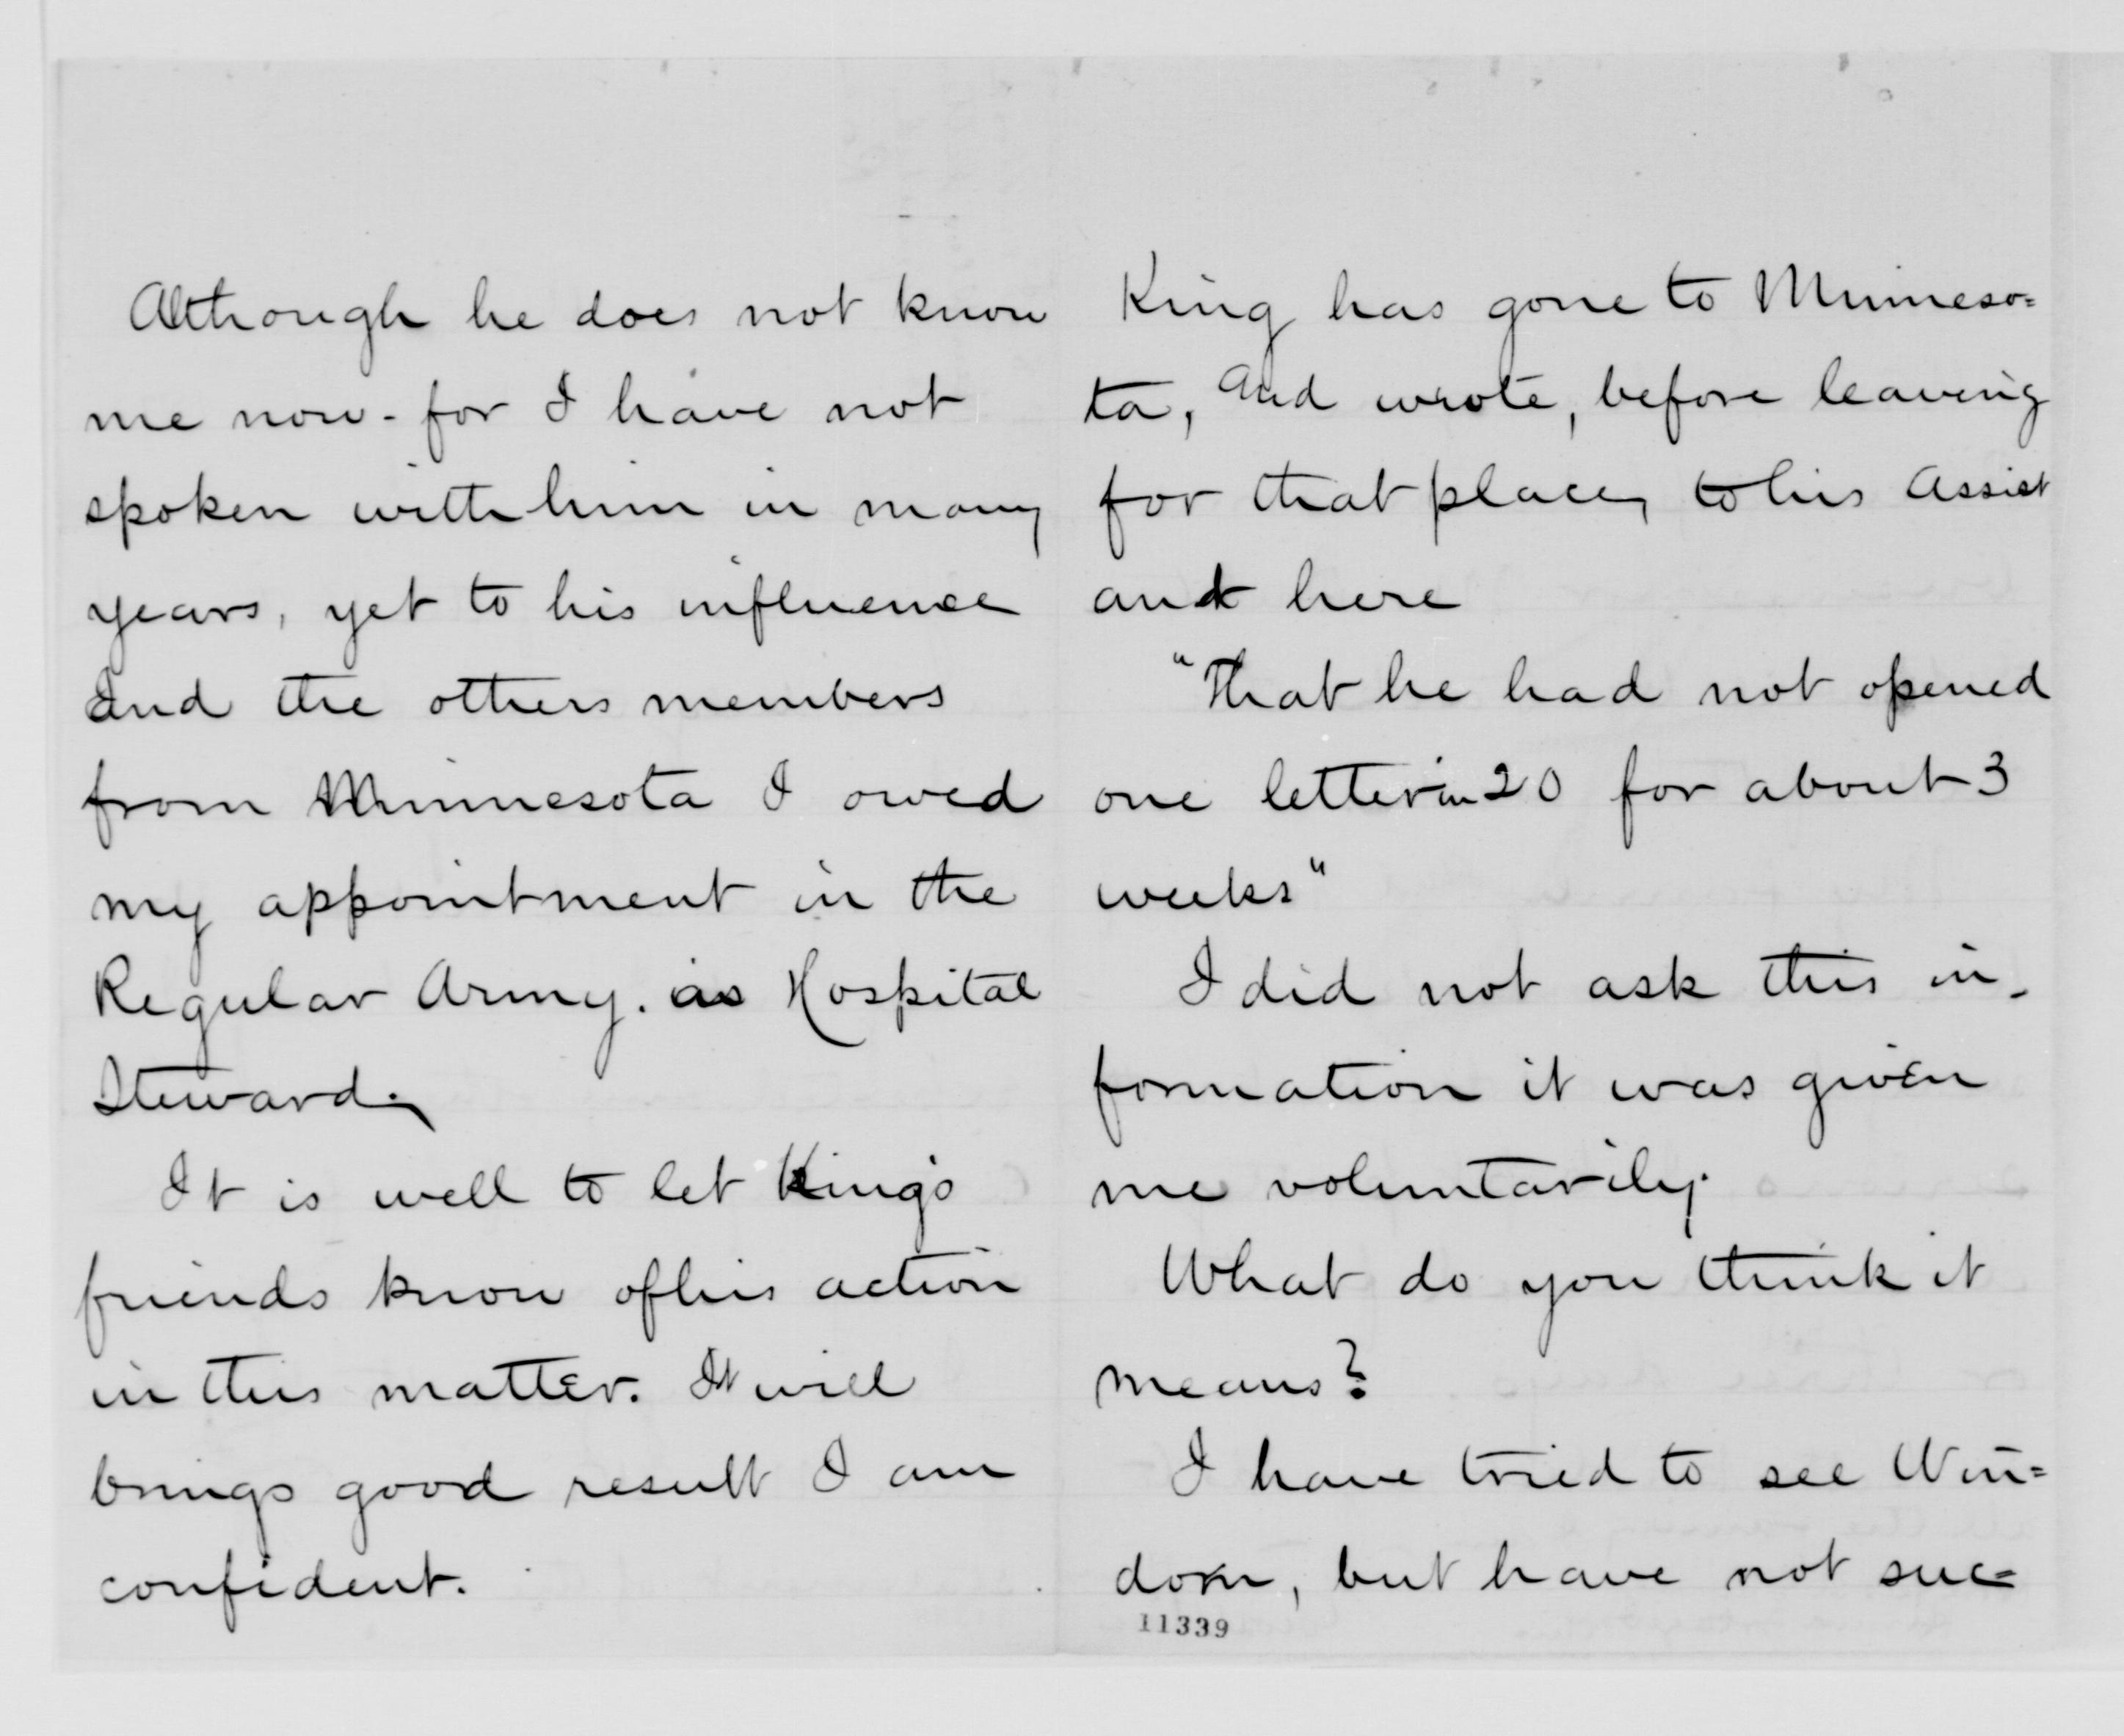 Although he does not know
me now - for I have not
spoken with him in many
years, yet to his influence
and the others members
from Minnesota I owed
my appointment in the
Regular Army. as Hospital
Steward.
It is well to let King's
friends know of his action
in this matter. It will
brings good result I am
confident.
King has gone to Minneso=
ta, and wrote, before leaving
for that place, to his assist
ant here
"That he had not opened
one letter in 20 for about 3
weeks"
I did not ask this in-
formation it was given
me voluntarily.
What do you think it
means?
I have tried to see Win=
dom, but have not suc=
11339